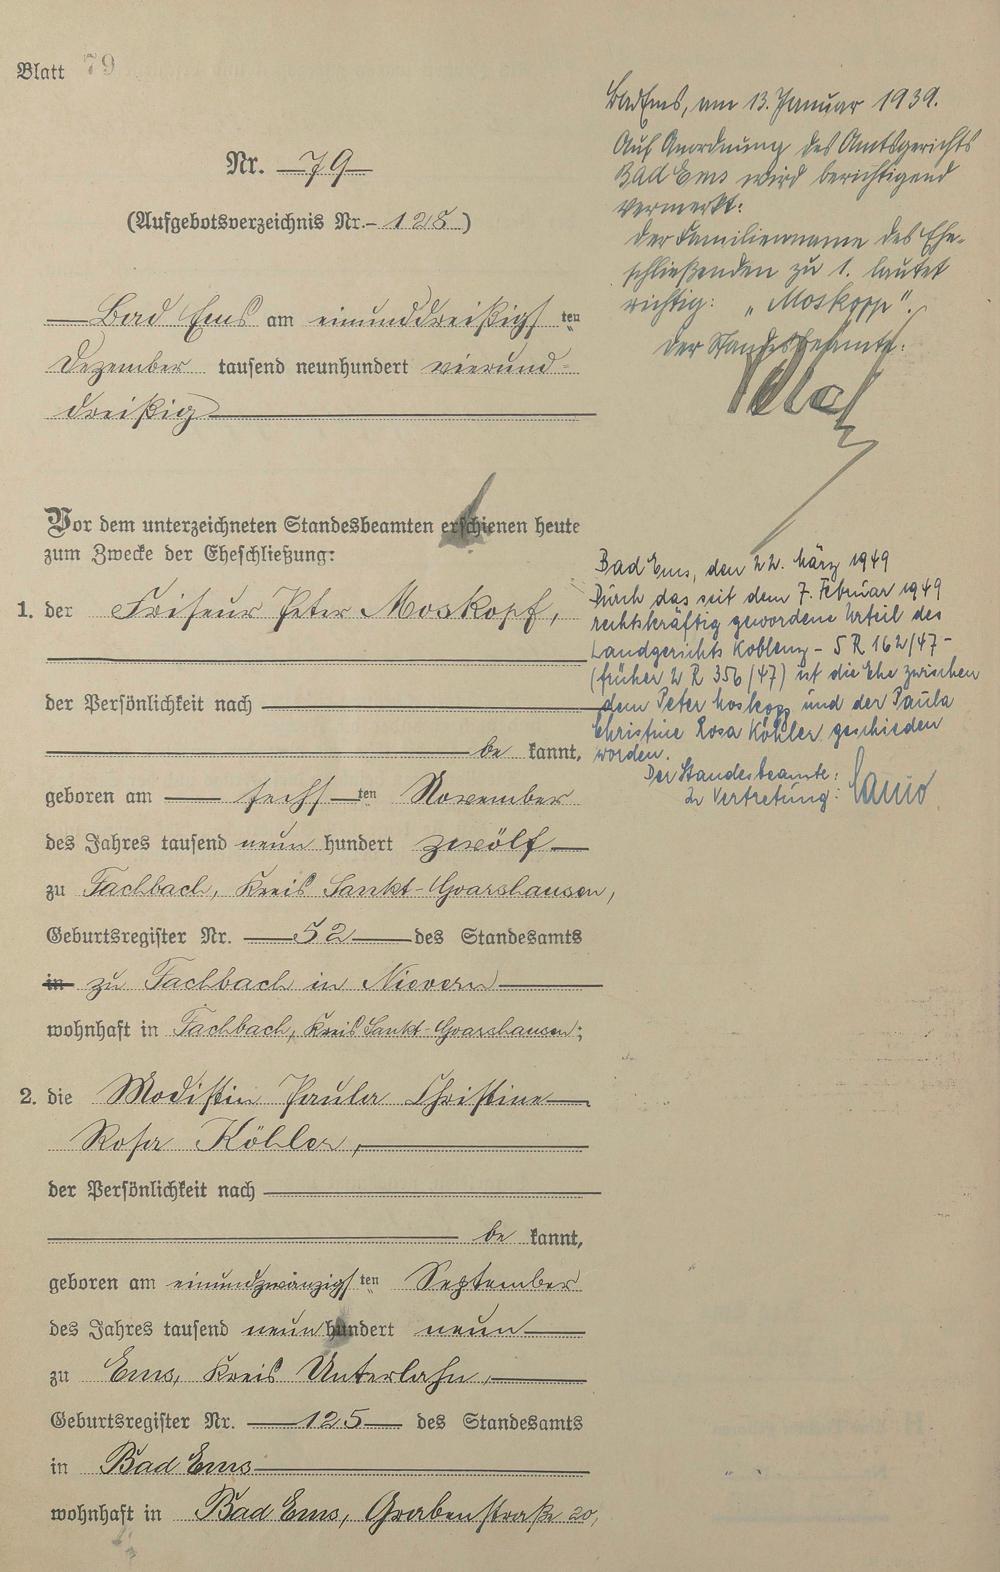 Blatt 79
Nr. 79
(Aufgebotsverzeichnis Nr. 128)
Bad Ems am einunddreißigsten
Dezember tausend neunhundert vierund-
dreißig
Vor dem unterzeichneten Standesbeamten erschienen heute
zum Zwecke der Eheschließung:
1. der Friseur Peter Moskopf,
der Persönlichkeit nach
be kannt,
geboren am sechsten November
des Jahres tausend neun hundert zwölf
zu Fachbach, Kreis Sankt-Goarshausen,
Geburtsregister Nr. 52 des Standesamts
in zu Fachbach in Nievern
wohnhaft in Fachbach, Kreis Sankt-Goarshausen;
2. die Modistin Paula Christine
Rosa Köhler,
der Persönlichkeit nach
be kannt,
geboren am einundzwanzigsten September
des Jahres tausend neun hundert neun
zu Ems, Kreis Unterlahn,
Geburtsregister Nr. 125 des Standesamts
in Bad Ems
wohnhaft in Bad Ems, Grabenstraße 20,
Bad Ems, am 13. Januar 1939.
Auf Anordnung des Amtsgerichts
Bad Ems wird berichtigend
vermerkt:
der Familienname des Ehe-
schließenden zu 1. lautet
richtig: „Moskopp".
Der Standesbeamte:
Bad Ems, den 22. März 1949
Durch das seit dem 7. Februar 1949
rechtskräftig gewordene Urteil des
Landgerichts Koblenz - 5 R 162/47 -
(früher 2 R 356/47) ist die Ehe zwischen
dem Peter Moskopp und der Paula
Christine Rosa Köhler geschieden
worden.
Der Standesbeamte:
In Vertretung: